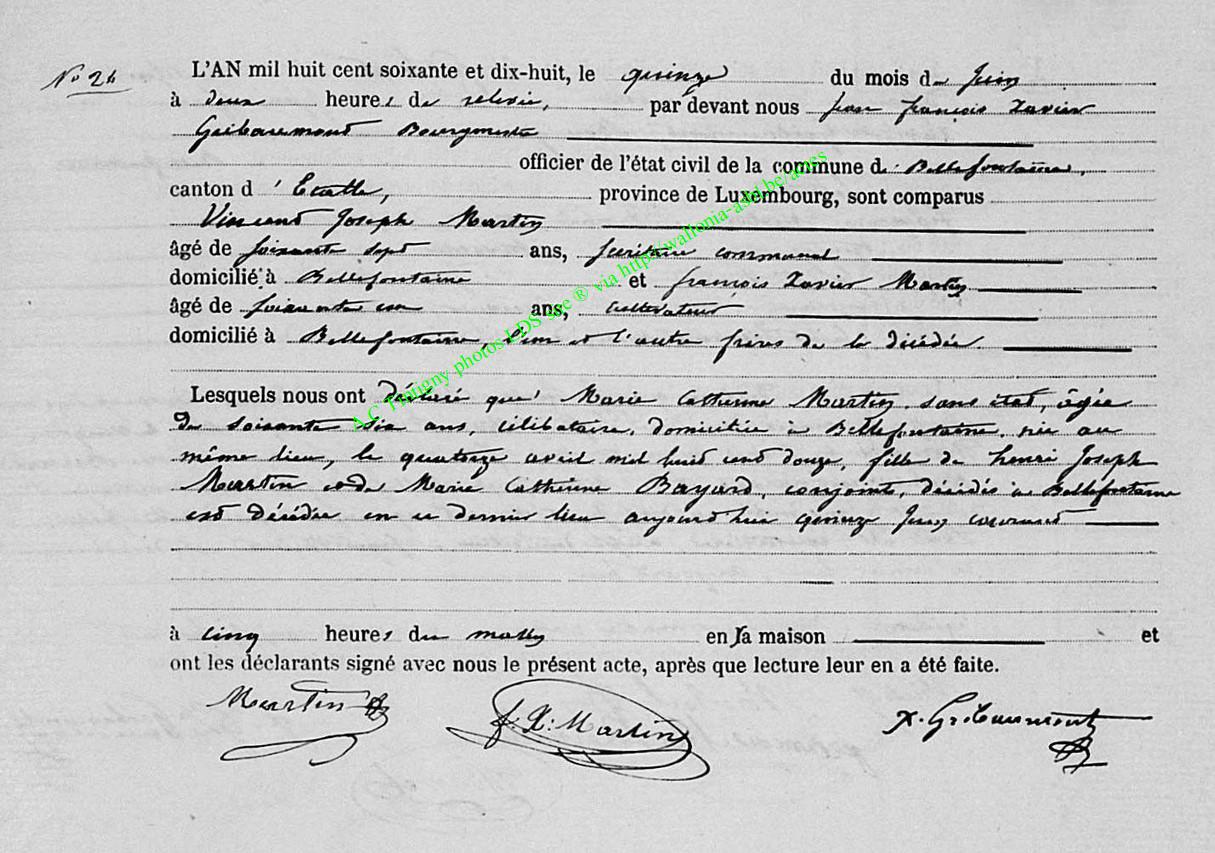 No 26
L'AN mil huit cent soixante et dix-huit, le quinze du mois de Juin
à deux heures de relevée, par devant nous Jean françois Xavier
Gribaumont Bourgmestre
officier de l'état civil de la commune de Bellefontaine,
canton d'Etalle, province de Luxembourg, sont comparus
Vincent Joseph Martin
âgé de soixante sept ans, secrétaire communal
domicilié à Bellefontaine et françois Xavier Martin
âgé de soixante un ans, cultivateur
domicilié à Bellefontaine, l'un et l'autre frères de la décédée.
Lesquels nous ont déclaré que Marie Catherine Martin, sans état, âgée
de soixante six ans, célibataire, domiciliée à Bellefontaine, née au
même lieu, le quatorze avril mil huit cent douze, fille de henri Joseph
Martin et de Marie Catherine Bayard, conjoints, décédés à Bellefontaine
est décédée en ce dernier lieu aujourd'hui quinze Juin courant
à cinq heures du matin en sa maison et
ont les déclarants signé avec nous le présent acte, après que lecture leur en a été faite.
Martin f. X. Martin X. Gribaumont
A.C. Tintigny photos LDS site ® via http://wallonia-asbl.be/actes